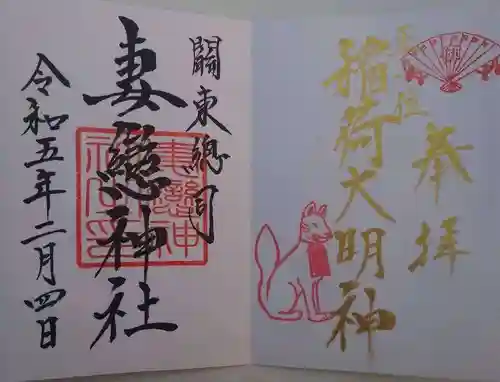 奉拝
正一位
稲荷大明神
關東總司
妻戀神社
令和五年二月四日
妻戀神社之印